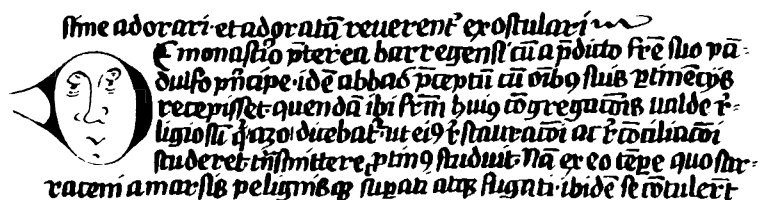 sime adorari · et adoratā reuerent᷑ exosculari
De monast᷑io p̄terea barregensi cū a p̄dicto fr̄e suo pā-
dulfo p̄ncipe · idē abbas p̄ceptū cū oībꝰ suis ꝑtinētijs
recepisset · quendā ibi fr̄m huiꝰ cōgregacōnis ualde r̄-
ligiosū q̇ azo dicebat᷑ · ut eiꝰ r̄stauracōi ac r̄cōciliacōi
studeret · tn̄smittere ꝓtinꝰ studuit · Nā ex eo tēꝑe quo sar-
raceni a marsis pelignisqꝫ suꝑati atqꝫ fugati · ibidē se cōtuler̄t